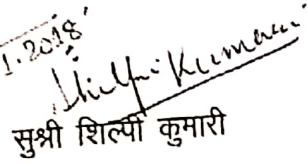 1.2018
Shilpi Kumari
सुश्री शिल्पी कुमारी